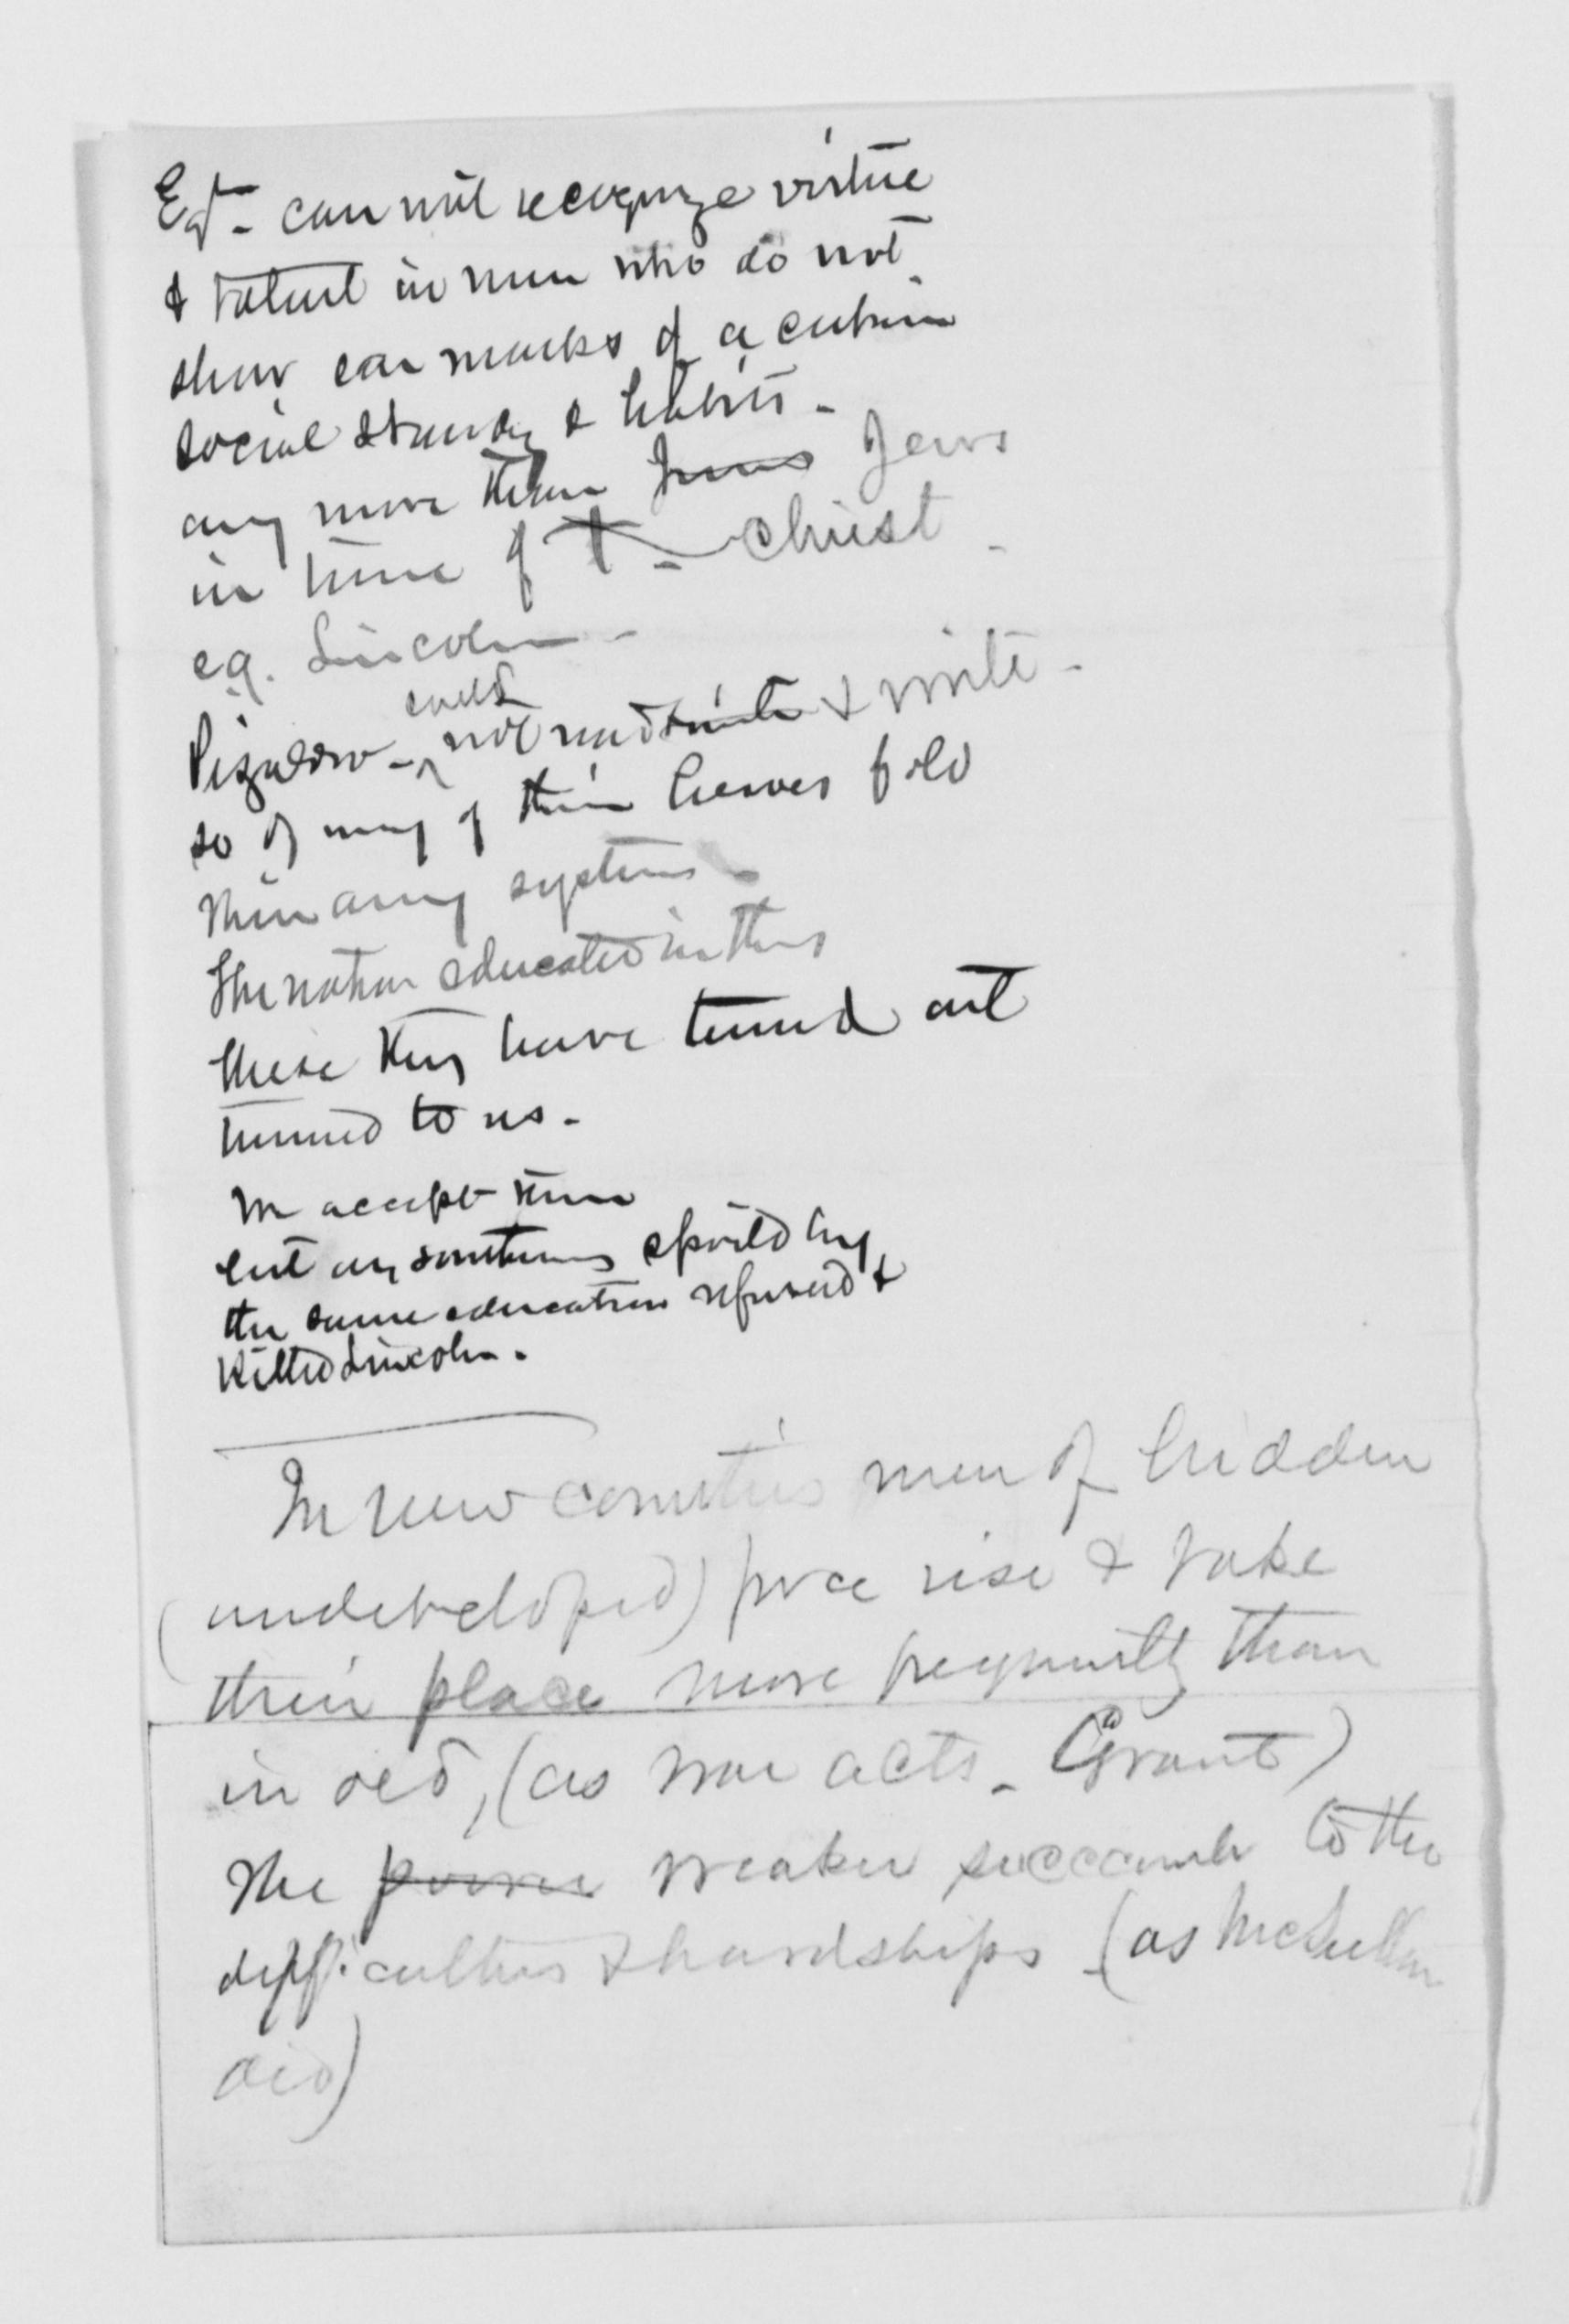 can not recognize virtue
& talent in men who do not
show ear marks of a certain
social standing & habits -
any more than Jews Jews
in time of Christ -
e.g. Lincoln -
could
Pizarro - not read write & write -
so of many of their heroes
army system -
The nation educated in this
these they have turned out
turned to us -
We accept them
but are sometimes spoild by
the same education refused &
killed Lincoln.
In new countries men of hidden
(undeveloped) force rise & take
their place more frequently than
in old, (as war acts - Grant)
The weaker succumb to the
difficulties & hardships (as McClellan
did)